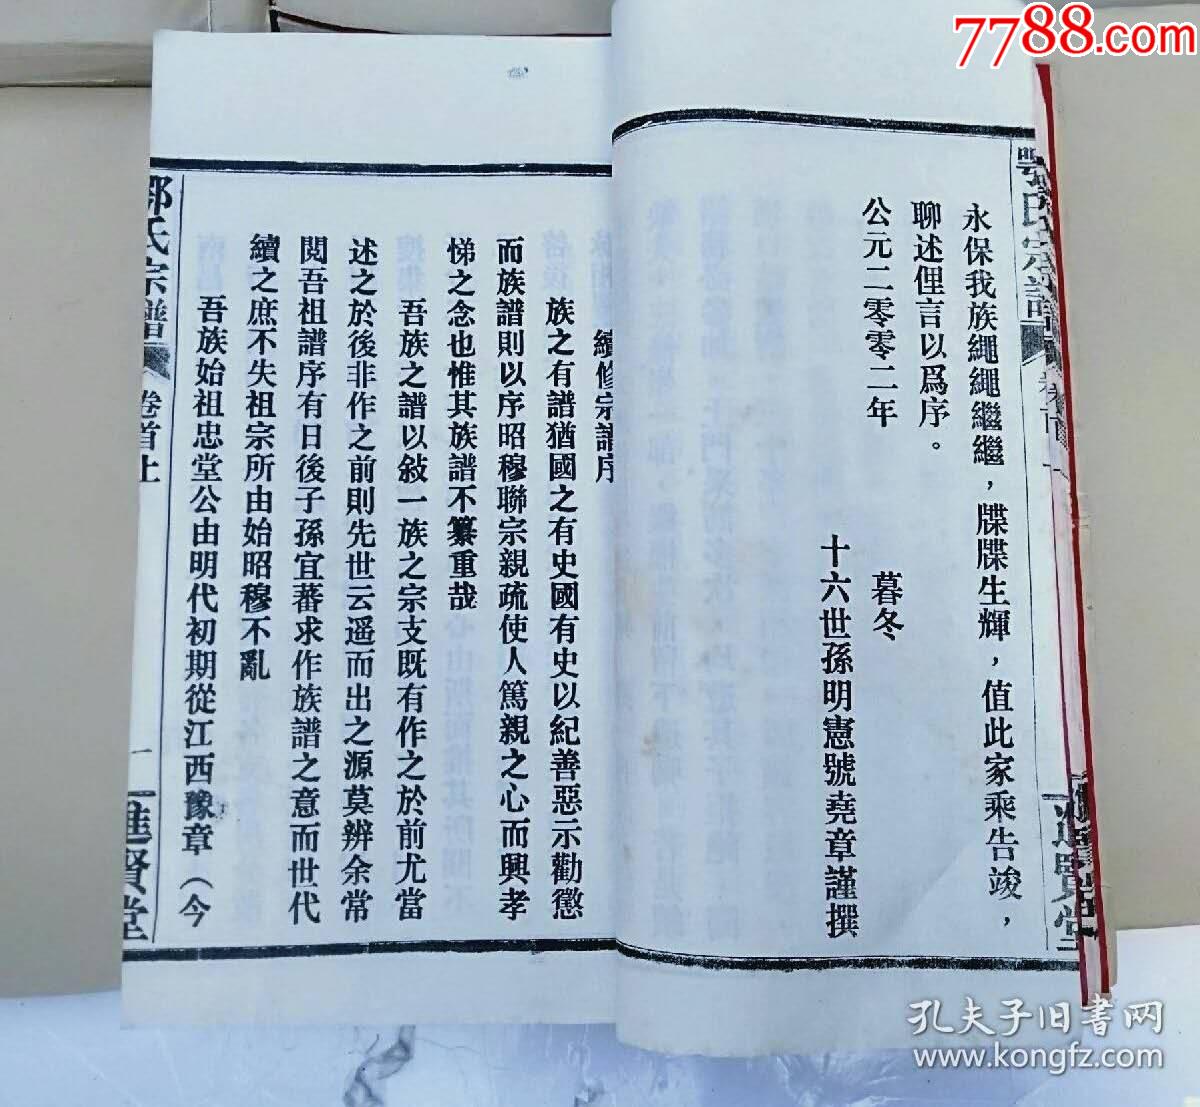 7788.com
永保我族繩繩繼繼，牒牒生輝，值此家乘告竣，
聊述俚言以爲序。
公元二零零二年 暮冬
十六世孫明憲號堯章謹撰
續修宗譜序
族之有譜猶國之有史國有史以紀善惡示勸懲
而族譜則以序昭穆聯宗親疏使人篤親之心而興孝
悌之念也惟其族譜不纂重哉
吾族之譜以敍一族之宗支既有作之於前尤當
述之於後非作之前則先世云遥而出之源莫辨余常
閱吾祖譜序有日後子孫宜蕃求作族譜之意而世代
續之庶不失祖宗所由始昭穆不亂
吾族始祖忠堂公由明代初期從江西豫章（今
氏宗譜
卷首上
一
進賢堂
孔夫子旧书网
www.kongfz.com